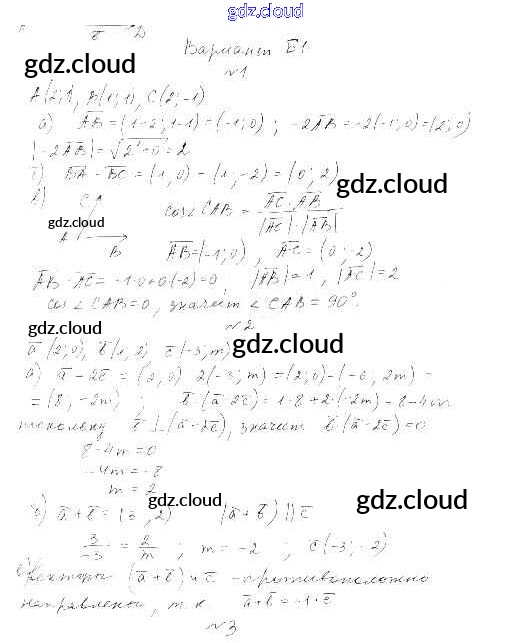 gdz.cloud
в D
Вариант Б1
gdz.cloud
№1
A(2;1), B(1;1), C(2;-1)
gdz.cloud
а) AB = (1-2; 1-1) = (-1; 0) ; -2AB = -2(-1; 0) = (2; 0)
|-2AB| = √(2²+0²) = 2
б) BA - BC = (1, 0) - (1, -2) = (0; 2)
gdz.cloud
в) C
cos∠CAB = AC · AB / |AC| · |AB|
gdz.cloud
A B AB = (-1; 0) , AC = (0; -2)
AB · AC = -1·0+0(-2) = 0, |AB| = 1, |AC| = 2
cos∠CAB = 0, значит ∠CAB = 90°.
№2
gdz.cloud gdz.cloud
a (2; 0), b (1, 2), c (-3; m)
а) a - 2c = (2, 0) 2(-3; m) = (2; 0) - (-6, 2m) =
= (8, -2m) ; b·(a 2c) = 1·8 + 2·(-2m) = 8-4m
поскольку b ⊥ (a-2c), значит b (a-2c) = 0
8-4m = 0
-4m = -8
m = 2
gdz.cloud gdz.cloud
б) a + b = (3, 2) (a + b) || c
3/-3 = 2/m ; m = -2 ; c (-3; -2)
в) Векторы (a+b) и c - противоположно
направлены, т.к. a+b = -1·c
№3